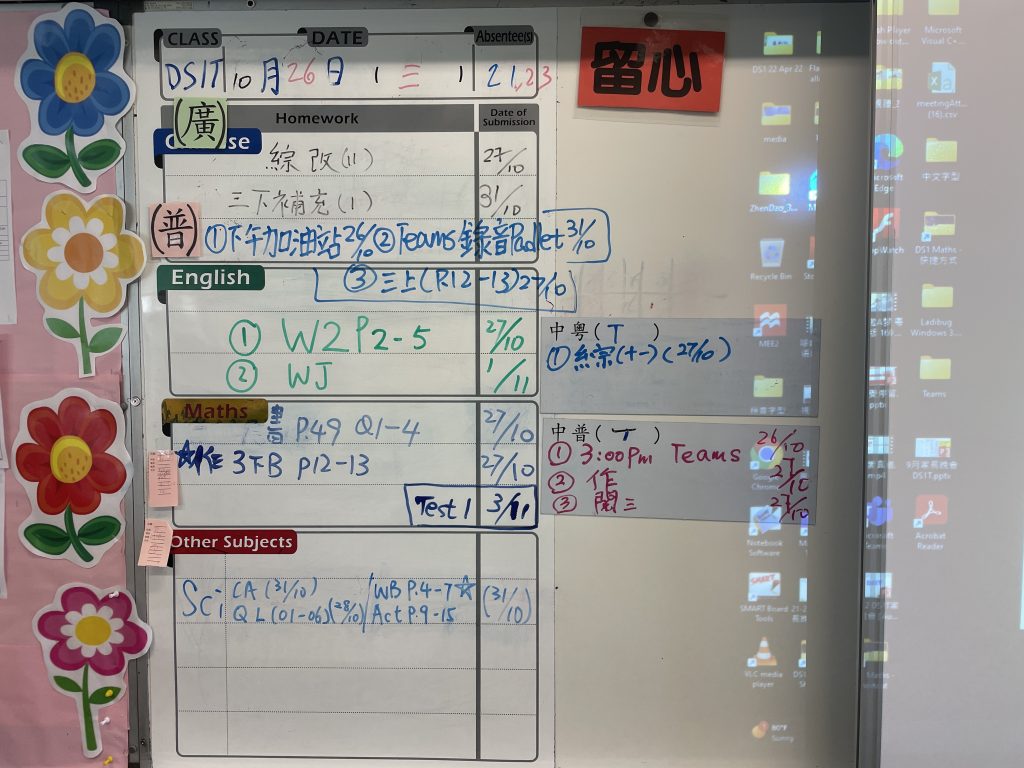 CLASS DATE Absentee(s)
DS1T 10月26日 ( 三 ) 21,23
留心
Homework Date of Submission
(廣)
綜改(11) 27/10
三下補充(1) 31/10
(普)
①下午加油站26/10 ②Teams錄音Padlet 31/10
③三上(R12-13)27/10
English
① W2 P2-5 27/10
② WJ 1/11
Maths
P.49 Q1-4 27/10
3下B P12-13 27/10
Test 1 3/11
Other Subjects
Sci CA (31/10) WB P.4-7☆ (31/10)
QL(01-06)(28/10) Act P.9-15
中粵( T )
①綜(十一)(27/10)
中普( T )
① 3:00pm Teams 26/10
② 作 27/10
③ 閱三 27/10
DS1 22 Apr 22
Microsoft Visual C+...
media
meetingAtt... (16).csv
ZhenDza_3...
Edge
中文字型
Recycle Bin
DS1 Maths - 快捷方式
MEE2
Ladibug Windows 3...
Teams
Notebook Software
Acrobat Reader
SMART Board Tools
VLC media player
80°F
Sunny